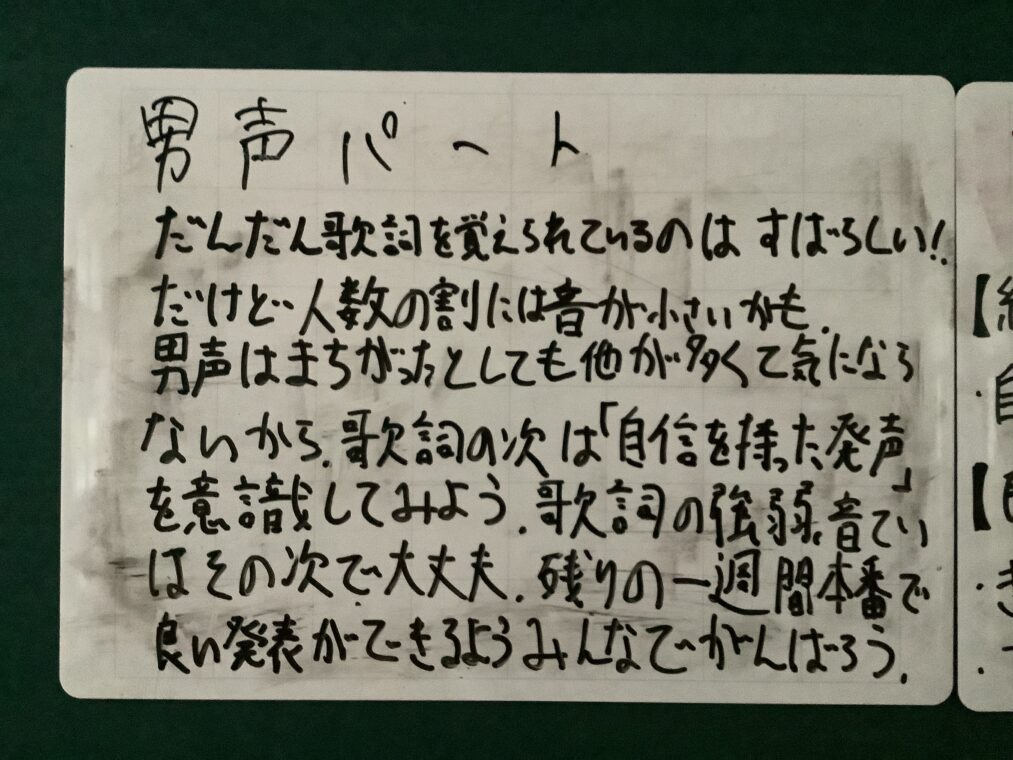 男声パート
だんだん歌詞を覚えられているのは すばらしい!!
だけど、人数の割には音が小さいかも.
男声はまちがったとしても他が多くて気になら
ないから、歌詞の次は「自信を持った発声」
を意識してみよう. 歌詞の強弱、音てい
はその次で大丈夫. 残りの一週間本番で
良い発表ができるようみんなでがんばろう.